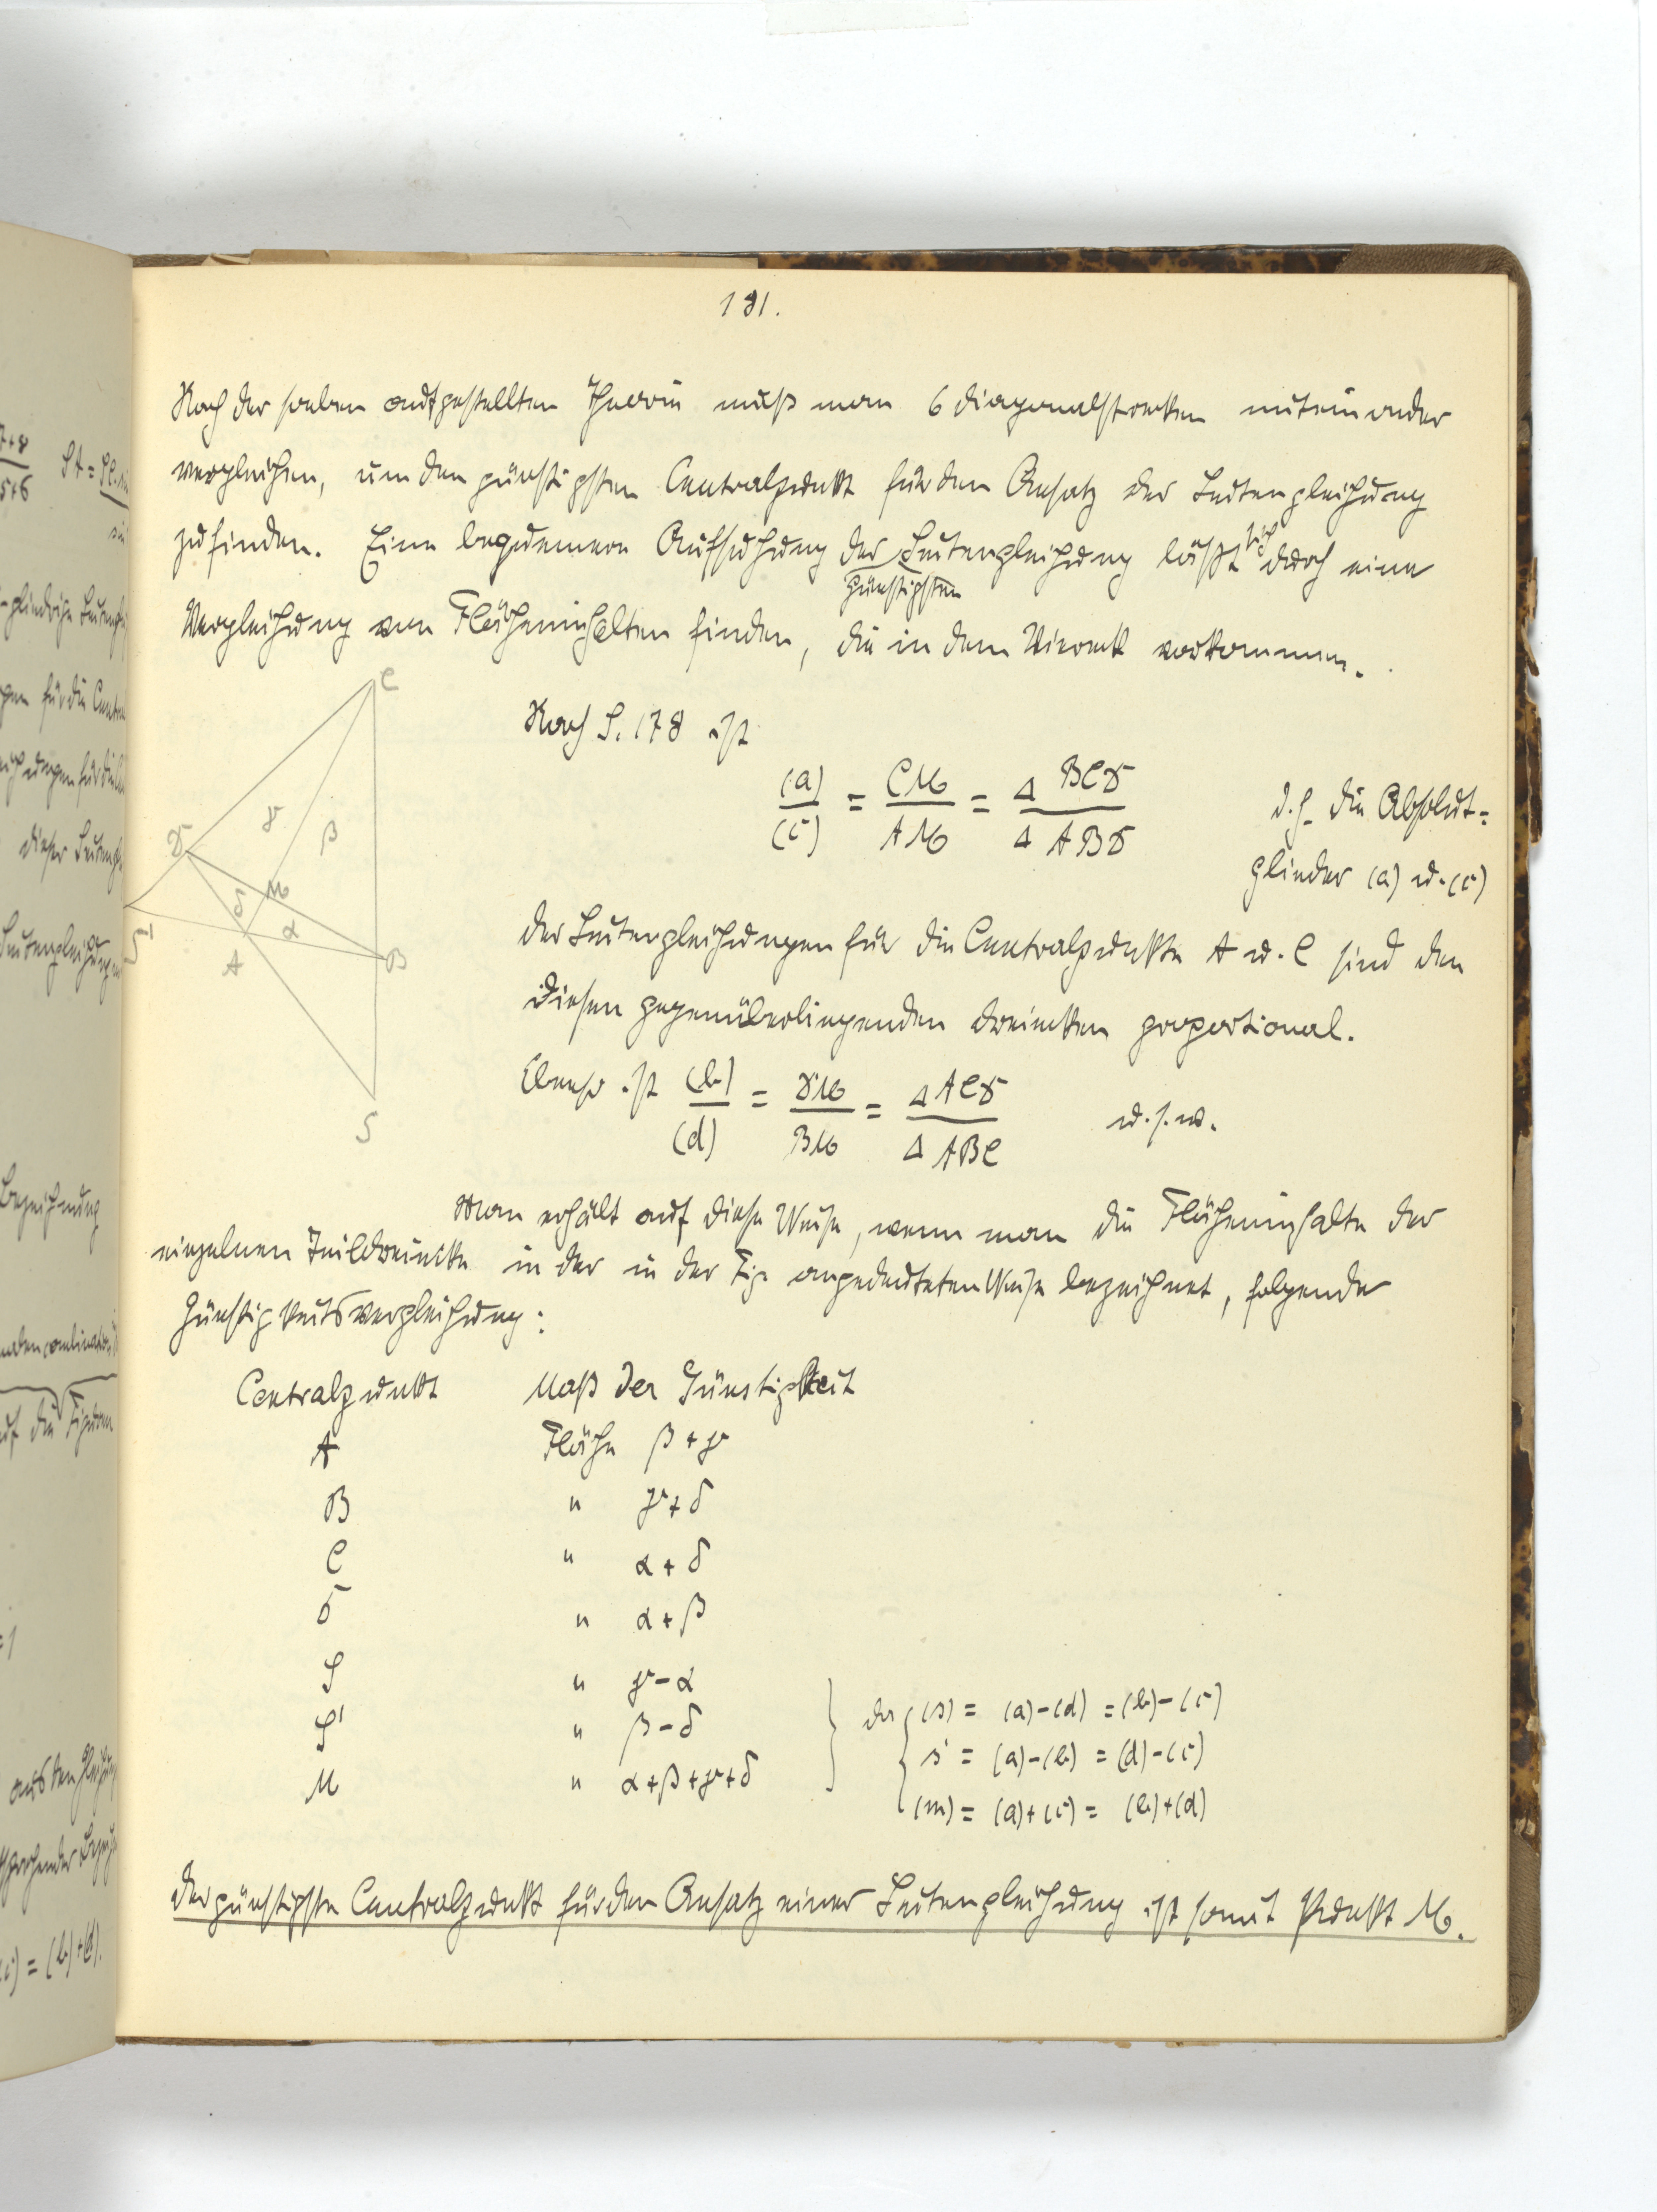 181.
Nach der soeben aufgestellten Theorie muß man 6 Diagonalstrecken miteinander
vergleichen, um den günstigsten Centralpunkt für den Ansatz der Seitengleichung
zu finden. Eine bequemere Aufsuchung der Seitengleichung läßt sich durch eine
günstigsten
Vergleichung von Flächeninhalten finden, die in dem Viereck vorkommen.
Nach S. 178 ist
(a)/(c) = CM/AM = Δ BCD/Δ ABD d.h. die Absolut-
glieder (a) u. (c)
der Seitengleichungen für die Centralpunkte A u. C sind den
diesen gegenüberliegenden Dreiecken proportional.
Ebenso ist (b)/(d) = DM/BM = Δ ACD/Δ ABC u.s.w.
Man erhält auf diese Weise, wenn man die Flächeninhalte der
einzelnen Teildreiecke in der in der Fig. angedeuteten Weise bezeichnet, folgende
Günstigkeitsvergleichung:
Centralpunkt Maß der Günstigkeit
A Fläche β + γ
B " γ + δ
C " α + δ
D " α + β
S " γ - α
S' " β - δ
M " α + β + γ + δ
da (s) = (a) - (d) = (b) - (c)
s' = (a) - (b) = (d) - (c)
(m) = (a) + (c) = (b) + (d)
Der günstigste Centralpunkt für den Ansatz einer Seitengleichung ist somit Punkt M.
C
D
γ
β
M
δ
α
A
B
S'
S